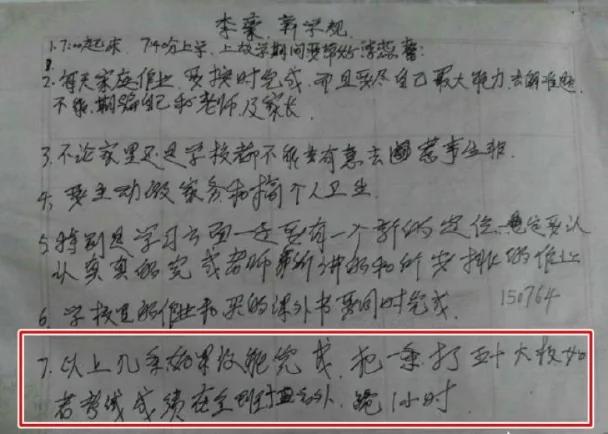 李豪新学规
1. 7:00起来 7:40分上学.上放学期间要带好
2. 每天家庭作业要按时完成.而且要尽自己最大能力去解难题
不能欺骗自己和老师及家长.
3. 不论家里还是学校都不能有意去惹事生非.
4. 要主动做家务和搞个人卫生.
5. 特别是学习方面一定要有一个新的定位.一定要认
认真真的完成老师所讲的和所安排的作业
6. 学校里的作业和买的课外书要同时完成.
150764
7. 以上几条如果没能完成.打五十大板如
若考试成绩在全班外.跪1小时.